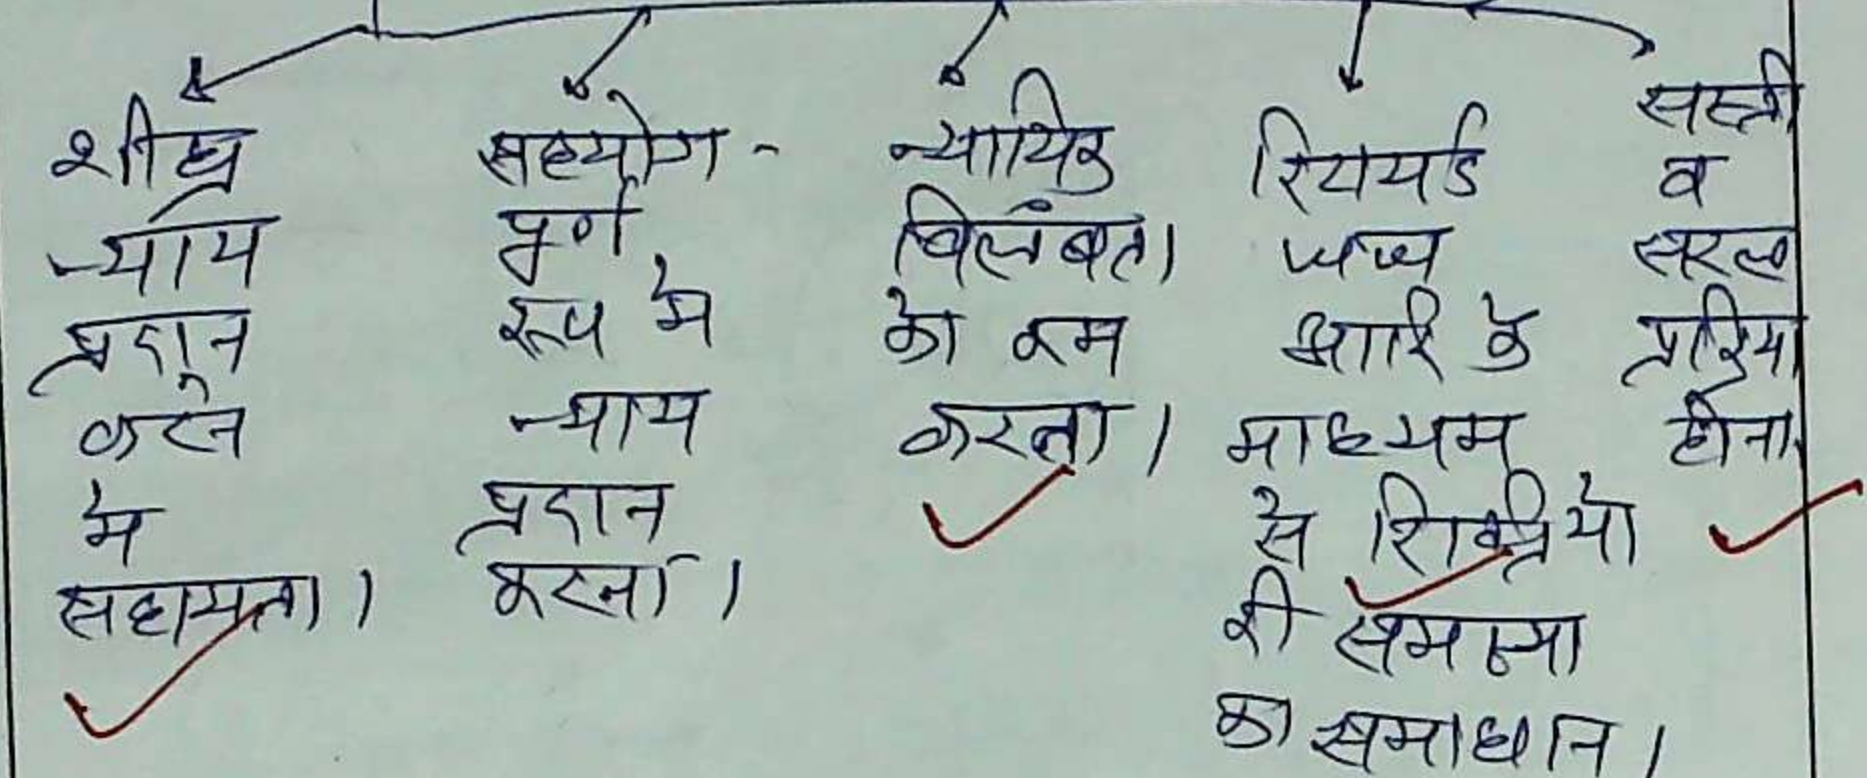 शीघ्र
न्याय
प्रदान
करने
में
सहायता।
सहयोग-
पूर्ण
रूप में
न्याय
प्रदान
करना।
न्यायिक
विलंबता
को कम
करना।
रिटायर्ड
जज
आदि के
माध्यम
से रिक्तियों
की समस्या
का समाधान।
सस्ती
व
सरल
प्रक्रिया
होना